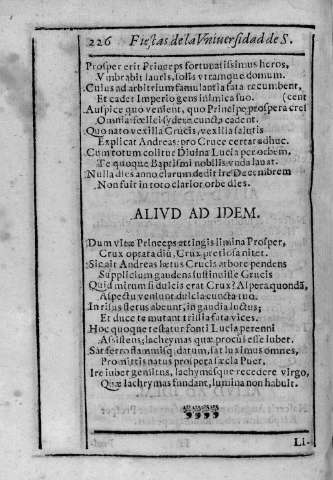 226 Fiestas de la Vniuersidad de S.
Prosper erit Princeps fortunatissimus heros,
Vmbrabit lauris, solis vtramque domum.
Cuius ad arbitrium famulantia fata recumbent,
Et cadet Imperio gens inimica suo. (cent
Auspice quo venient, quo Principe prospera cres
Omnia fœlici sydere cuncta cadent.
Quo nato vexilla Crucis, vexilla salutis
Explicat Andreas: pro Cruce certat adhuc.
Cum totum colitur Diuina Lucia per orbem,
Te quoque Baptismi nobilis vnda lauat.
Nulla dies anno clarum dedit ire Decembrem
Non fuit in toto clarior orbe dies.
ALIVD AD IDEM.
Dum vitæ Princeps attingis limina Prosper,
Crux optata diù, Crux pretiosa nitet.
Sic ait Andreas lætus Crucis arbore pendens
Supplicium gaudens sustinuisse Crucis
Quid mirum si dulcis erat Crux? Aspera quondã,
Aspectu veniunt dulcia cuncta tuo.
In risus fletus abeunt, in gaudia luctus;
Et duce te mutant tristia fata vices.
Hoc quoque testatur fonti Lucia perenni
Assistens, lachymas quæ procul esse iubet.
Sat ferro flammisq; datum, sat luximus omnes,
Promittis natus prospera sæcla Puer.
Ire iubet gemitus, lachymasque recedere virgo,
Quæ lachrymas fundant, lumina non habuit.
Li-